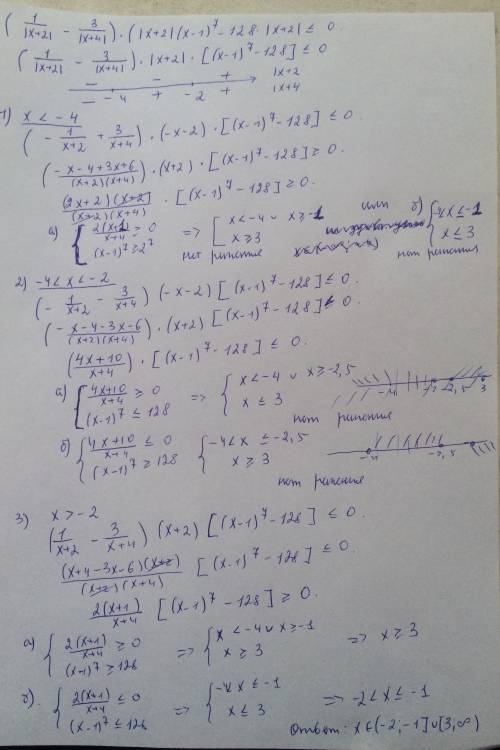 ( 1/|x+2| - 3/|x+4| ) · (|x+2|(x-1)^7 - 128 · |x+2| ≤ 0
( 1/|x+2| - 3/|x+4| ) · |x+2| · [(x-1)^7 - 128] ≤ 0
- - + |x+2
- -4 + -2 + |x+4
1) x < -4
( - 1/(x+2) + 3/(x+4) ) · (-x-2) · [(x-1)^7 - 128] ≤ 0.
( (-x-4+3x+6)/((x+2)(x+4)) ) · (x+2) · [(x-1)^7 - 128] ≥ 0.
(2x+2)(x+2)/((x+2)(x+4)) · [(x-1)^7 - 128] ≥ 0.
а) { 2(x+1)/(x+4) ≥ 0 => [ x < -4 ∪ x ≥ -1 или б) { -4<x ≤ -1
(x-1)^7 ≥ 2^7 x ≥ 3 x ≤ 3
нет решения нет решения
2) -4 < x < -2
( - 1/(x+2) - 3/(x+4) ) (-x-2) [(x-1)^7 - 128] ≤ 0
( (-x-4-3x-6)/((x+2)(x+4)) ) · (x+2) [(x-1)^7 - 128] ≤ 0.
( (4x+10)/(x+4) ) · [(x-1)^7 - 128] ≤ 0.
а) { (4x+10)/(x+4) ≥ 0 => { x < -4 ∪ x ≥ -2,5
(x-1)^7 ≤ 128 x ≤ 3
-4 -2,5 3
нет решения
б) { (4x+10)/(x+4) ≤ 0 { -4<x ≤ -2,5
(x-1)^7 ≥ 128 x ≥ 3
-4 -2,5
нет решения
3) x > -2
( 1/(x+2) - 3/(x+4) ) (x+2) [(x-1)^7 - 128] ≤ 0.
(x+4-3x-6)(x+2)/((x+2)(x+4)) [(x-1)^7 - 128] ≤ 0.
2(x+1)/(x+4) [(x-1)^7 - 128] ≥ 0.
а) { 2(x+1)/(x+4) ≥ 0 => { x < -4 ∪ x ≥ -1 => x ≥ 3
(x-1)^7 ≥ 128 x ≥ 3
б) { 2(x+1)/(x+4) ≤ 0 => { -4<x ≤ -1 => -2 < x ≤ -1
(x-1)^7 ≤ 128 x ≤ 3
Ответ: x∈(-2;-1]∪[3,∞)